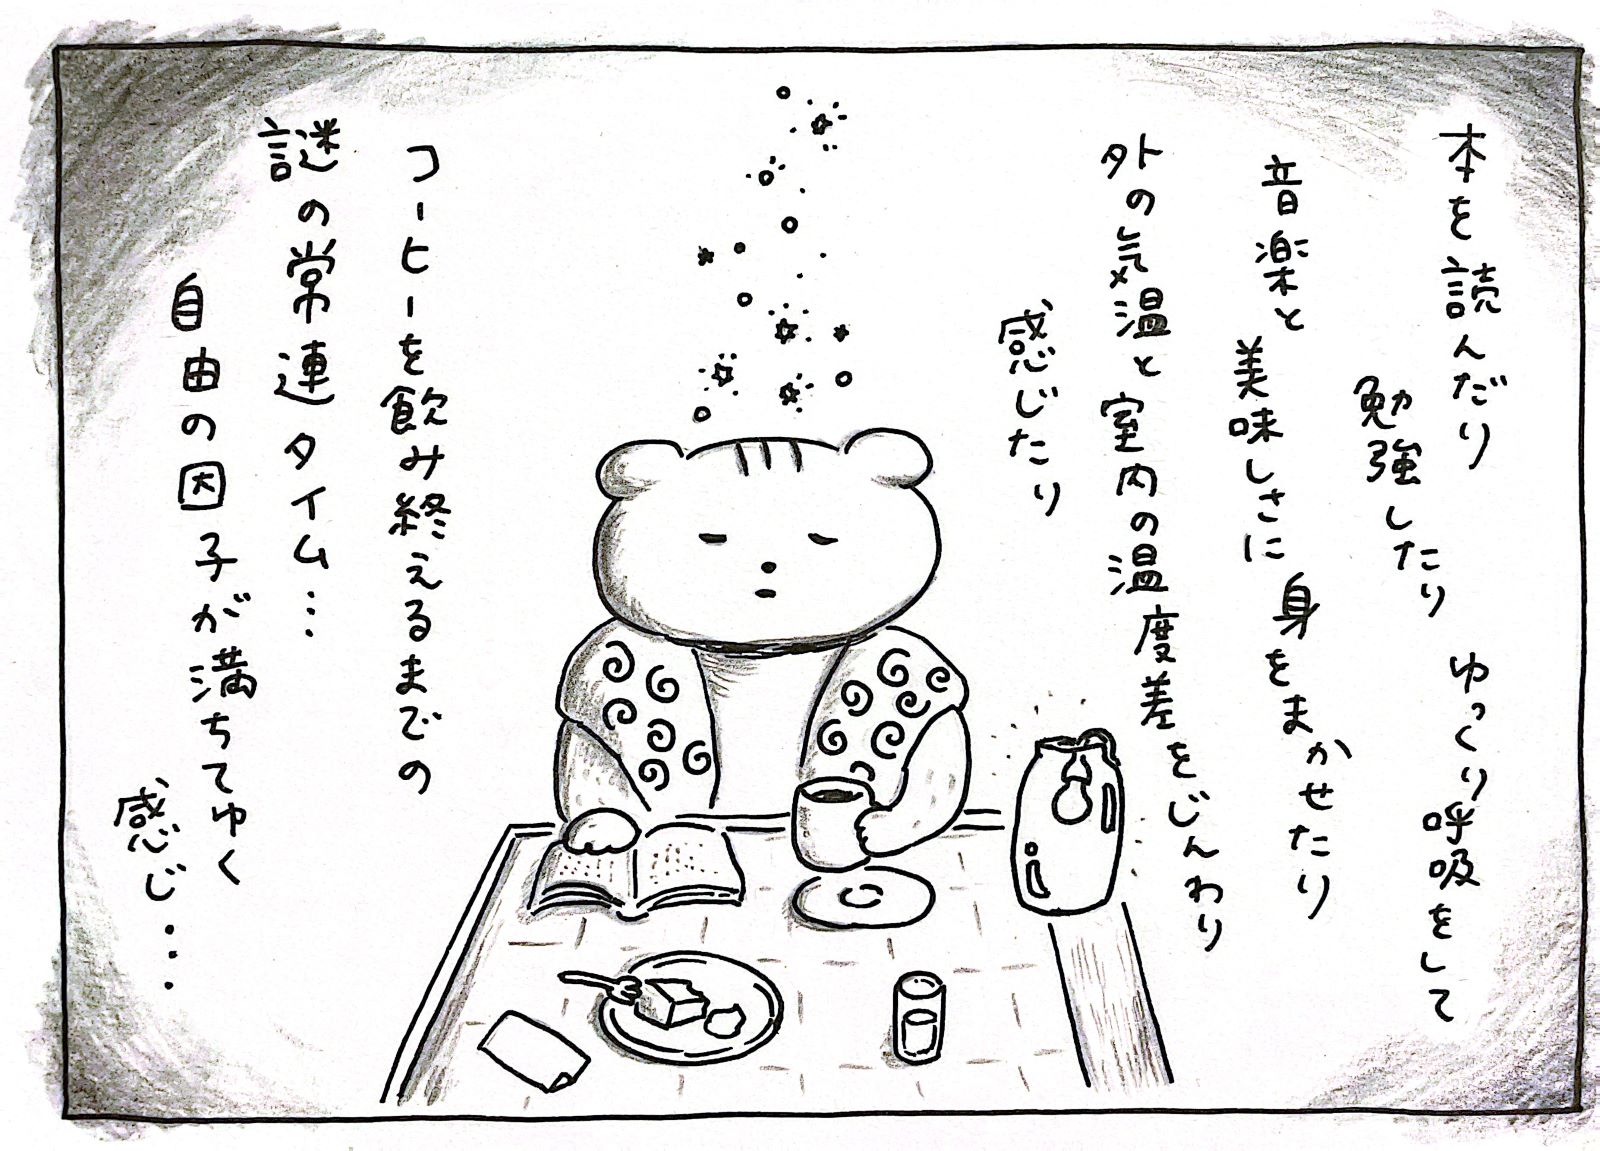 本を読んだり
勉強したり
ゆっくり呼吸をして
音楽と
美味しさに
身をまかせたり
外の気温と室内の温度差をじんわり
感じたり
コーヒーを飲み終えるまでの
謎の常連タイム…
自由の因子が満ちてゆく
感じ…